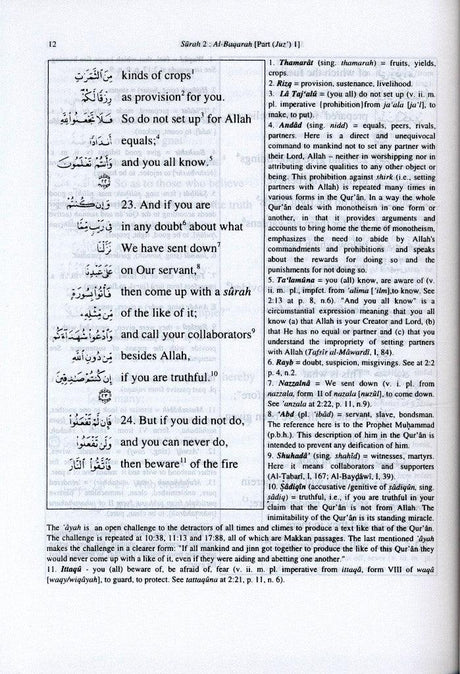 12 Sūrah 2 : Al-Baqarah [Part (Juz') 1]
مِنَ الثَّمَرَٰتِ kinds of crops¹
رِزْقًا لَّكُمْ as provision² for you.
فَلَا تَجْعَلُوا۟ لِلَّهِ So do not set up³ for Allah
أَندَادًا equals;⁴
وَأَنتُمْ تَعْلَمُونَ and you all know.⁵
٢٢
وَإِن كُنتُمْ 23. And if you are
فِى رَيْبٍ مِّمَّا in any doubt⁶ about what
نَزَّلْنَا We have sent down⁷
عَلَىٰ عَبْدِنَا on Our servant,⁸
فَأْتُوا۟ بِسُورَةٍ then come up with a sûrah
مِّن مِّثْلِهِۦ of the like of it;
وَٱدْعُوا۟ شُهَدَآءَكُم and call your collaborators⁹
مِّن دُونِ ٱللَّهِ besides Allah,
إِن كُنتُمْ صَٰدِقِينَ if you are truthful.¹⁰
٢٣
فَإِن لَّمْ تَفْعَلُوا۟ 24. But if you did not do,
وَلَن تَفْعَلُوا۟ and you can never do,
فَٱتَّقُوا۟ ٱلنَّارَ then beware¹¹ of the fire
1. Thamarât (sing. thamarah) = fruits, yields,
crops.
2. Rizq = provision, sustenance, livelihood.
3. Lâ Taj'alû = (you all) do not set up (v. ii. m.
pl. imperative [prohibition] from ja'ala [ja'l], to
make, to put).
4. Andâd (sing. nidd) = equals, peers, rivals,
partners. Here is a direct and unequivocal
command to mankind not to set any partner with
their Lord, Allah – neither in worshipping nor in
attributing divine qualities to any other object or
being. This prohibition against shirk (i.e., setting
partners with Allah) is repeated many times in
various forms in the Qur'ân. In a way the whole
Qur'ân deals with monotheism in one form or
another, in that it provides arguments and
accounts to bring home the theme of monotheism,
emphasizes the need to abide by Allah's
commandments and prohibitions and speaks
about the rewards for doing so and the
punishments for not doing so.
5. Ta'lamûna = you (all) know, are aware of (v.
ii. m. pl., impfct. from 'alima ['ilm],to know. See
2:13 at p. 8, n.6). "And you all know" is a
circumstantial expression meaning that you all
know (a) that Allah is your Creator and Lord, (b)
that He has no equal or partner and (c) that you
understand the impropriety of setting partners
with Allah (Tafsîr al-Mâwardî, I, 84).
6. Rayb = doubt, suspicion, misgivings. See at 2:2
p. 4, n.2.
7. Nazzalnâ = We sent down (v. i. pl. from
nazzala, form II of nazala [nuzûl], to come down.
See 'anzala at 2:21, p. 11, n.9).
8. 'Abd (pl. 'ibâd) = servant, slave, bondsman.
The reference here is to the Prophet Muḥammad
(p.b.h.). This description of him in the Qur'ân is
intended to prevent any deification of him.
9. Shuhadâ' (sing. shahîd) = witnesses, martyrs.
Here it means collaborators and supporters
(Al-Ṭabarî, I, 167; Al-Bayḍâwî, I, 39).
10. Ṣâdiqîn (accusative /genitive of ṣâdiqûn, sing.
ṣâdiq) = truthful, i.e., if you are truthful in your
claim that the Qur'ân is not from Allah. The
inimitability of the Qur'ân is its standing miracle.
The 'âyah is an open challenge to the detractors of all times and climes to produce a text like that of the Qur'ân.
The challenge is repeated at 10:38, 11:13 and 17:88, all of which are Makkan passages. The last mentioned 'âyah
makes the challenge in a clearer form: "If all mankind and jinn got together to produce the like of this Qur'ân they
would never come up with a like of it, even if they were aiding and abetting one another."
11. Ittaqû - you (all) beware of, be afraid of, fear (v. ii. m. pl. imperative from ittaqâ, form VIII of waqâ
[waqy/wiqâyah], to guard, to protect. See tattaqûna at 2:21, p. 11, n. 6).